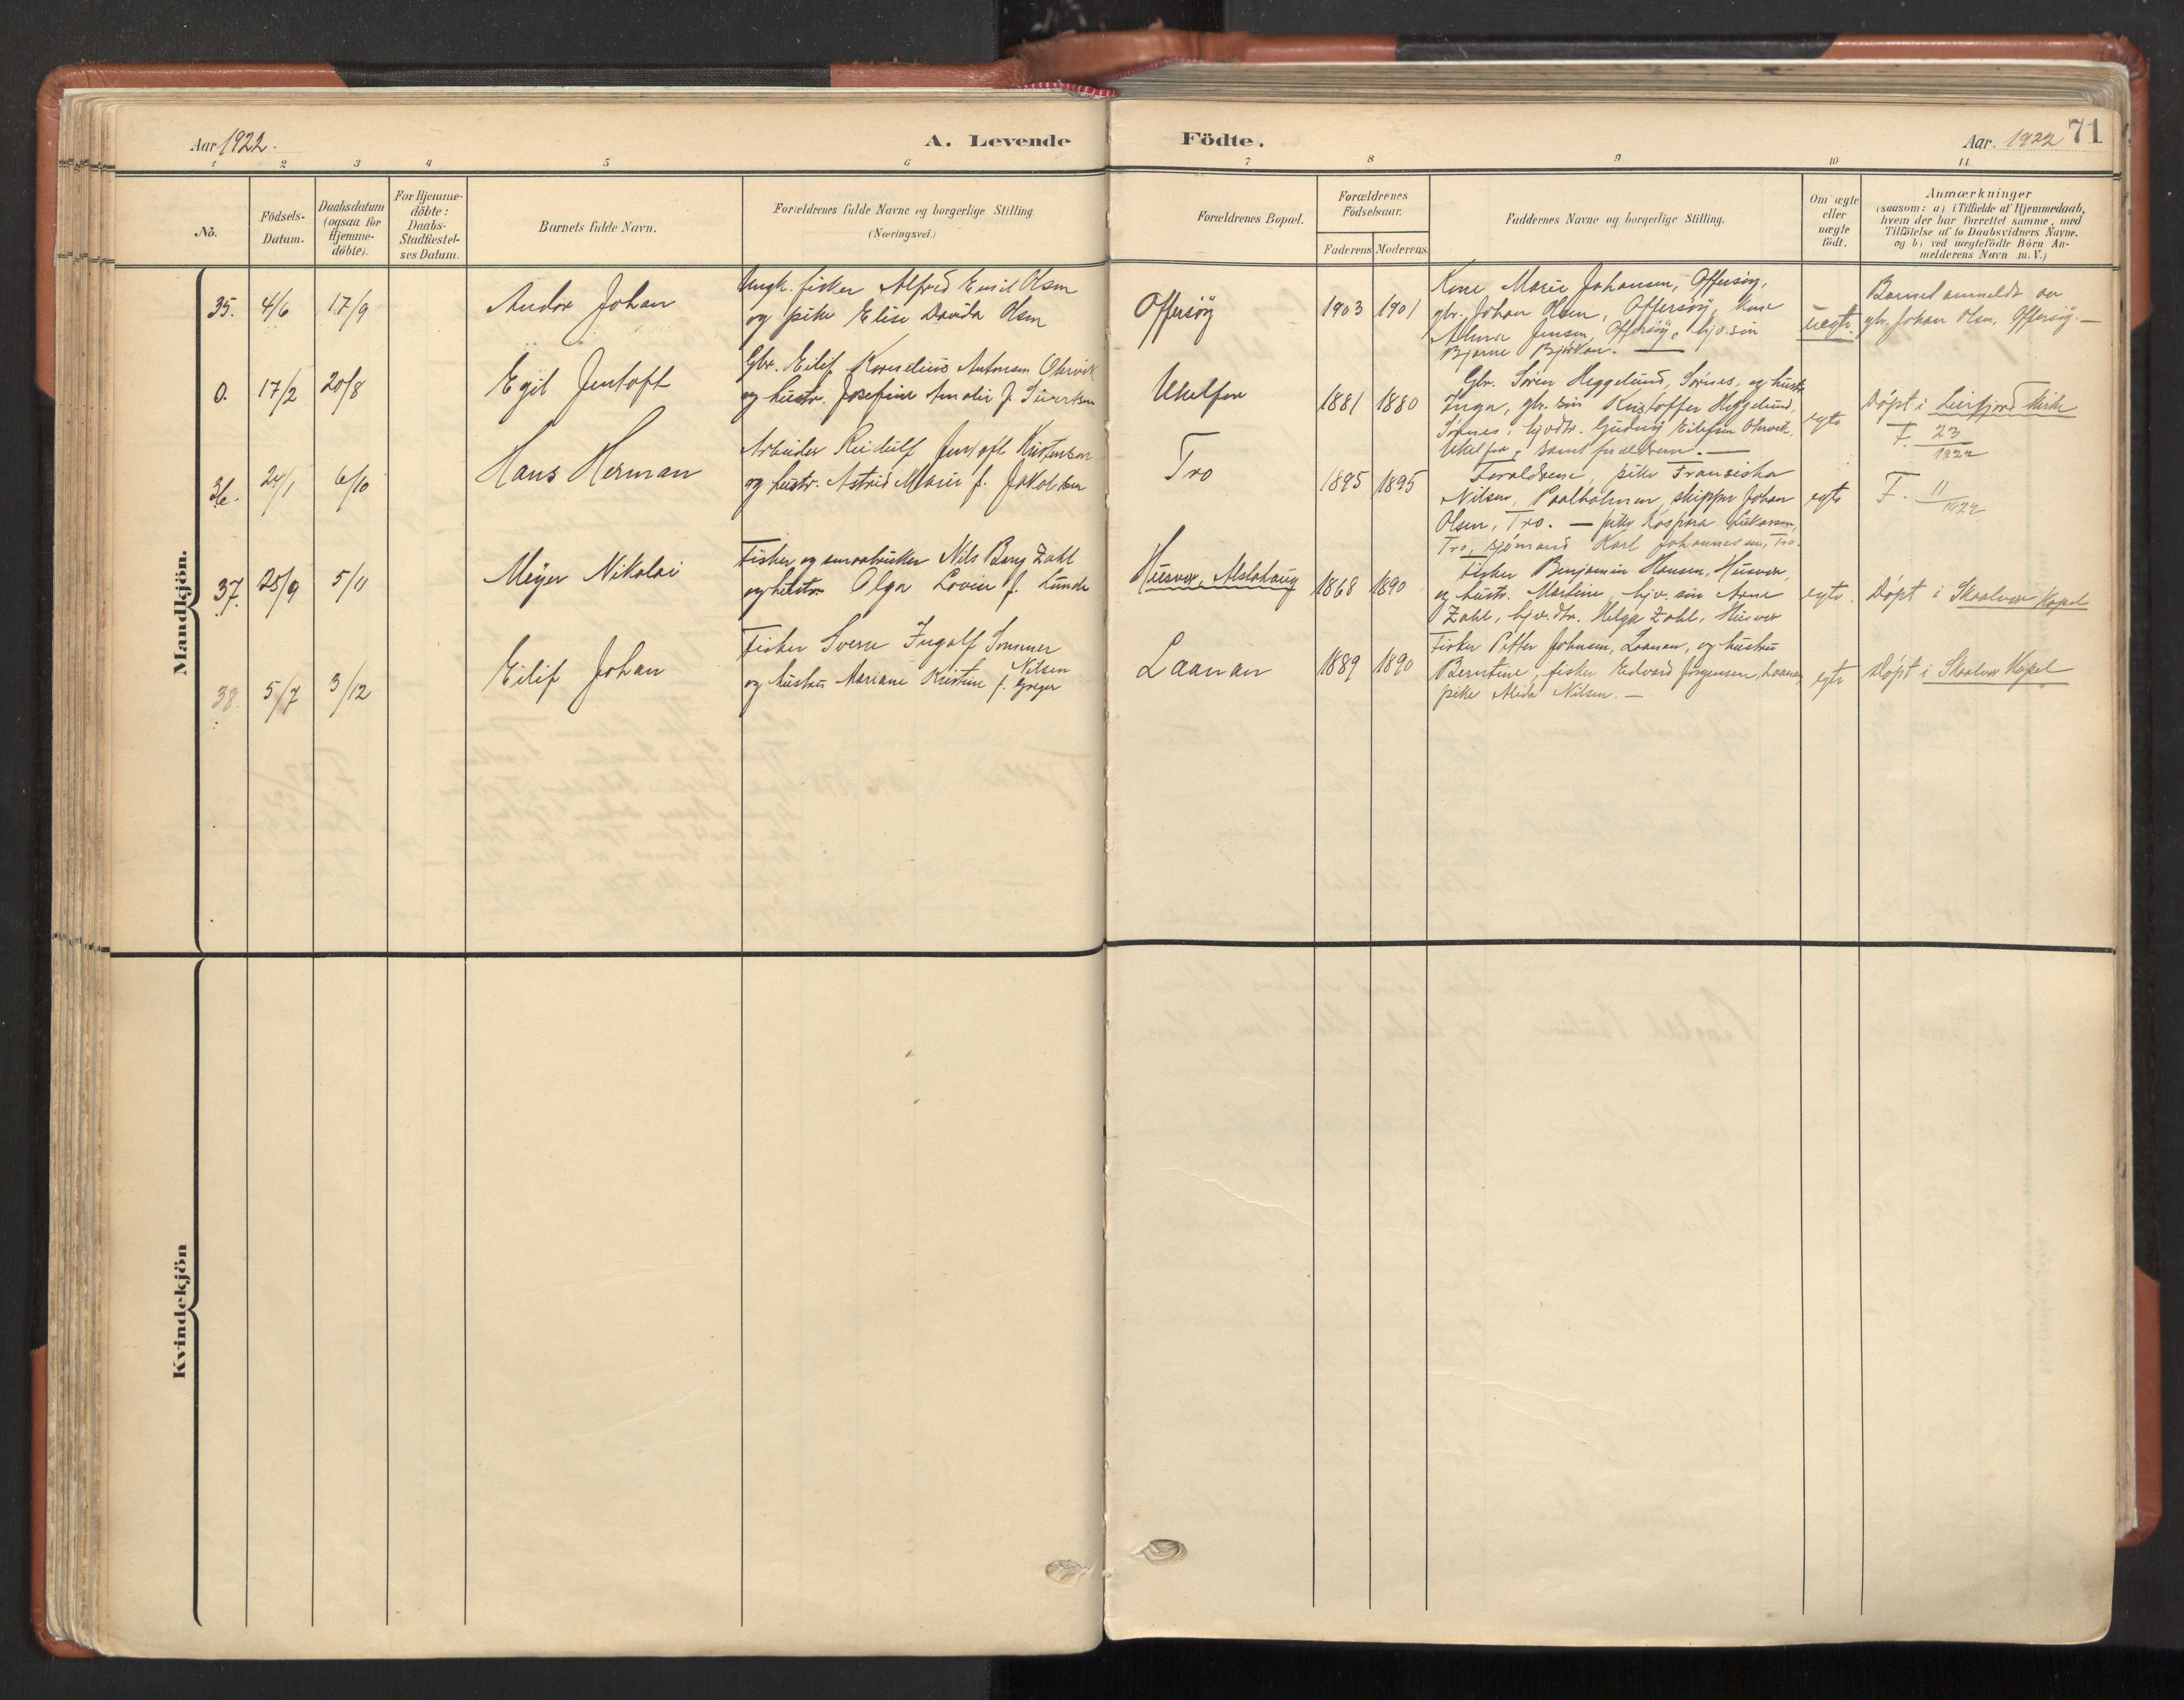 Aar 1922.
A. Levende
Födte.
Aar. 1922
71
1 2 3 4 5 6 7 8 9 10 11
No.
Födsels-
Datum.
Daabsdatum
(ogsaa for
Hjemme-
döbte).
For Hjemme-
döbte:
Daabs-
Stadfæstel-
ses Datum.
Barnets fulde Navn.
Forældrenes fulde Navne og borgerlige Stilling
(Næringsvei.)
Forældrenes Bopæl.
Forældrenes
Födselsaar.
Faderens Moderens
Faddernes Navne og borgerlige Stilling.
Om ægte
eller
uægte
födt.
Anmærkninger
(saasom: a) i Tilfælde af Hjemmedaab,
hvem der har forrettet samme, med
Tilföielse af to Daabsvidners Navne.
og b) ved uægtefödte Börn An-
melderens Navn m. V.)
Mandkjön.
35. 4/6 17/9
Andor Johan
Ungk. fisker Alfred Emil Olsen
og pike Elise Davida Olsen
Offersöy
1903 1901
Kone Marie Johansen, Offersöy,
gbr. Johan Olsen, Offersöy, kone
Jensen, Offersöy,
Bjarne
uegte.
Barnet anmeldt av
gbr. Johan Olsen, Offersöy. —
0. 17/2 20/8
Egil Jentoft
Gbr. Eilif Kornelius Antonsen
og hustr. Josefine Amalie f. Sivertsen
1881 1880
Gbr. Sören Heggelund, Sörnes, og hustr.
Inga, gbr. sön Kristoffer Heggelund,
Sörnes,
samt forældrene. —
egte
Döpt i Leirfjord kirke
F. 23
1922
36. 24/1 6/10
Hans Herman
Arbeider Jentoft Kristensen
og hustr. Astrid Marie f. Jakobsen
Tro
1895 1895
Foreldrene, pike Fransiska
Nilsen, skipper Johan
Olsen, Tro. — pike Kaspara
Tro, sjömand Karl Johannessen, Tro.
egte
F. 11
1922
37. 25/9 5/11
Meyer Nikolai
Fisker og smaabruker Nils Berg Zahl
og hustr. Olga Lovise f. Lunde
Husvær, Alstahaug
1868 1890
Fisker Benjamin Hansen, Husvær,
og hustr. Martine, hjv. sön Arne
Zahl, hjv. dtr. Helga Zahl, Husvær
egte.
Döpt i Skaalvær Kapel
38. 5/7 3/12
Eilif Johan
Fisker Sverre Ingolf Sommer
Nilsen
og hustru Mariane Kristine f. Greger
Laanan
1889 1890
Fisker Petter Johnsen, Laanan, og hustru
Berntine, fisker Edvard Jörgensen, Laanan,
pike Alida Nilsen. —
egte
Döpt i Skaalvær Kapel
Kvindekjön